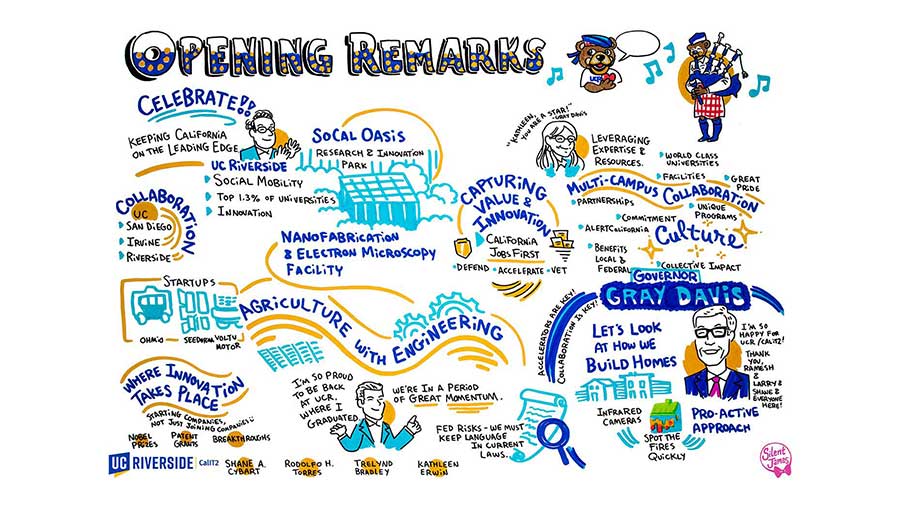 OPENING REMARKS
UCR
CELEBRATE!!
KEEPING CALIFORNIA
ON THE LEADING EDGE
UC RIVERSIDE
SOCIAL MOBILITY
TOP 1.3% OF UNIVERSITIES
INNOVATION
SOCAL OASIS
RESEARCH & INNOVATION
PARK
COLLABORATION
UC
SAN DIEGO
IRVINE
RIVERSIDE
NANOFABRICATION
& ELECTRON MICROSCOPY
FACILITY
"KATHLEEN,
YOU ARE A STAR!"
-GRAY DAVIS
LEVERAGING
EXPERTISE &
RESOURCES.
CAPTURING
VALUE &
INNOVATION
CALIFORNIA
JOBS FIRST
•DEFEND •ACCELERATE •VET
•WORLD CLASS
UNIVERSITIES
•FACILITIES
•GREAT
PRIDE
MULTI-CAMPUS COLLABORATION
•PARTNERSHIPS
•UNIQUE
PROGRAMS
•COMMITMENT
•ALERTCALIFORNIA
CULTURE
•BENEFITS
LOCAL &
FEDERAL
•COLLECTIVE IMPACT
STARTUPS
OHMIO
SEEDNRA
VOLTU
MOTOR
AGRICULTURE
WITH ENGINEERING
WHERE INNOVATION
TAKES PLACE
STARTING COMPANIES,
NOT JUST JOINING COMPANIES
NOBEL
PRIZES
PATENT
GRANTS
BREAKTHROUGHS
I'M SO PROUD
TO BE BACK
AT UCR.
WHERE I
GRADUATED.
WE'RE IN A PERIOD
OF GREAT MOMENTUM.
FED RISKS - WE MUST
KEEP LANGUAGE
IN CURRENT
LAWS..
ACCELERATORS ARE KEY!
COLLABORATION IS KEY!
GOVERNOR
GRAY DAVIS
LET'S LOOK
AT HOW WE
BUILD HOMES
I'M SO
HAPPY FOR
UCR/CALIT2!
THANK
YOU,
RAMESH
&
LARRY &
SHANE &
EVERYONE
HERE!
INFRARED
CAMERAS
SPOT THE
FIRES
QUICKLY
PRO-ACTIVE
APPROACH
UC RIVERSIDE | CalIT2
SHANE A.
CYBART
RODOLFO H.
TORRES
TRELYND
BRADLEY
KATHLEEN
ERWIN
Silent
James